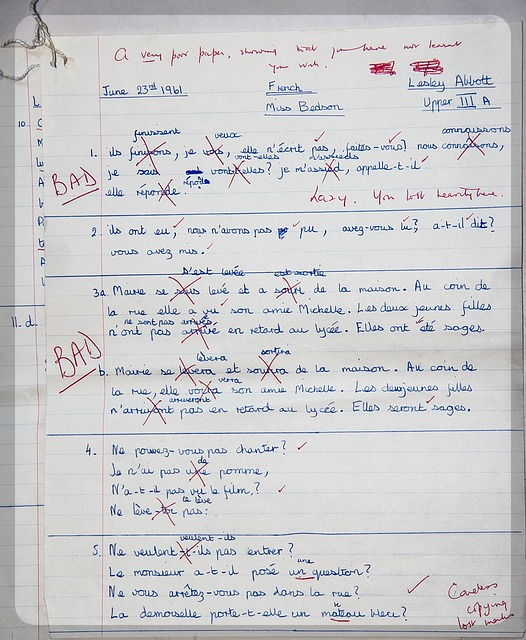 A very poor paper, showing that you have not learnt
your work.
June 23rd 1961. French Lesley Abbott
Miss Bedson Upper III A
finissent veux connaissons
1. ils finirons, je vois, elle n'écrit pas, faites-vous? nous connaisons,
vont-elles m'assieds
je sais vont-elles? je m'assied, appelle-t-il
BAD
répond
elle réponde. Lazy. You lost heavily here.
2. ils ont eu, nous n'avons pas pu, avez-vous lu? a-t-il dit?
vous avez mis.
s'est levée est sortie
3a. Marie se suis levé et a sorti de la maison. Au coin de
la rue elle a vu son amie Michelle. Les deux jeunes filles
ne sont pas arrivés
n'ont pas arrivé en retard au lycée. Elles ont été sages.
BAD
lèvera sortira
b. Marie se levera et sortira de la maison. Au coin de
verra
la rue, elle voira son amie Michelle. Les deux jeunes filles
arriveront
n'arriront pas en retard au lycée. Elles seront sages.
4. Ne pouvez-vous pas chanter?
de
Je n'ai pas une pomme,
N'a-t-il pas vu le film,?
te lève
Ne lève-toi pas:
veulent-ils
5. Ne veulent-t-ils pas entrer?
une
Le monsieur a-t-il posé un question?
Ne vous arrêtez-vous pas dans la rue?
La demoiselle porte-t-elle un mateau bleu?
Careless
copying
lost marks
10.
11. d.